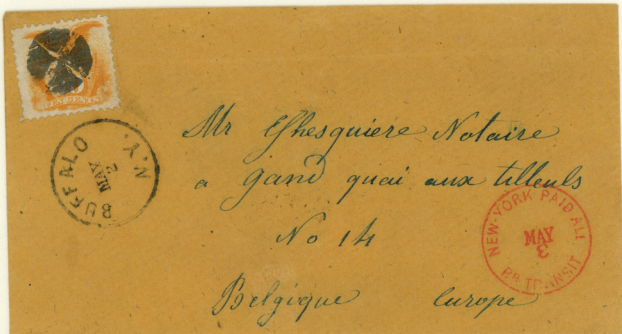 TEN CENTS
BUFFALO N.Y.
MAY
2
Mr Ghesquiere Notaire
a gand quai aux tilleuls
No 14
Belgique europe
NEW-YORK PAID ALL
MAY
3
BR. TRANSIT